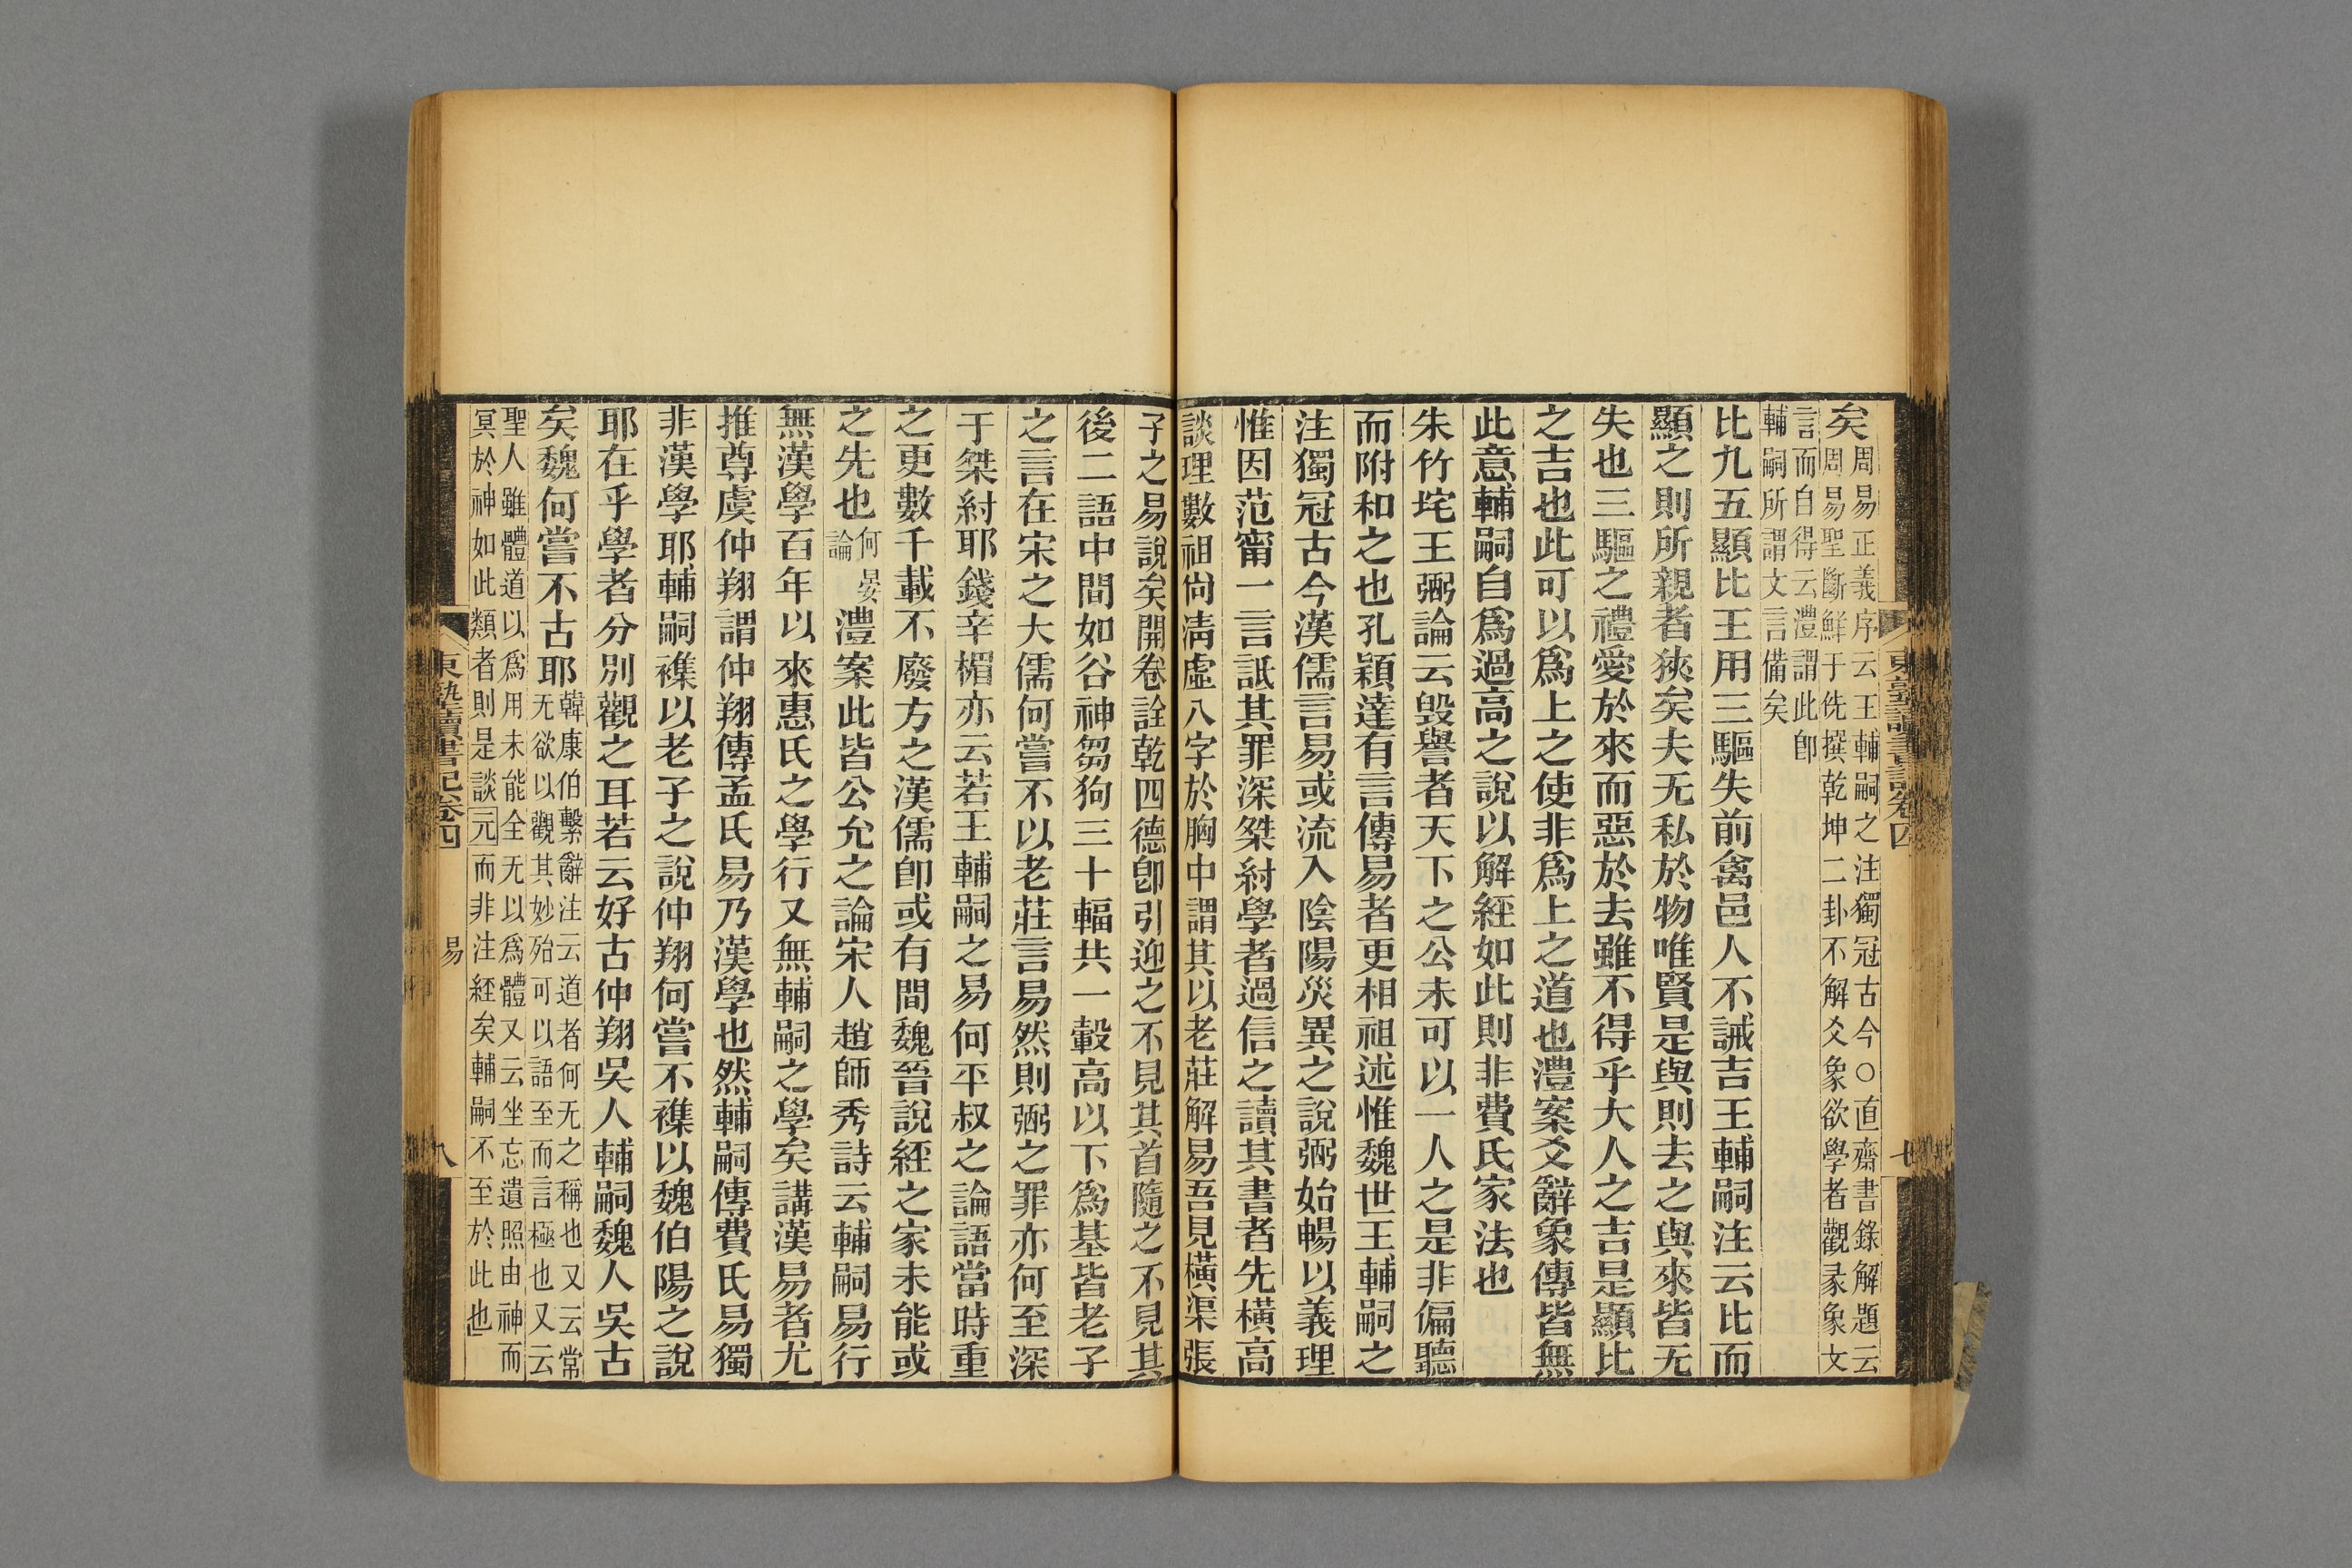 矣周易正義序云王輔嗣之注獨冠古今○直齋書錄解題云
周易聖斷鮮于侁撰乾坤二卦不解爻象欲學者觀彖象文
言而自得云澧謂此卽
輔嗣所謂文言備矣
比九五顯比王用三驅失前禽邑人不誡吉王輔嗣注云比而
顯之則所親者狹矣夫无私於物唯賢是與則去之與來皆无
失也三驅之禮愛於來而惡於去雖不得乎大人之吉是顯比
之吉也此可以爲上之使非爲上之道也澧案爻辭象傳皆無
此意輔嗣自爲過高之說以解經如此則非費氏家法也
朱竹垞王弼論云毀譽者天下之公未可以一人之是非偏聽
而附和之也孔穎達有言傳易者更相祖述惟魏世王輔嗣之
注獨冠古今漢儒言易或流入陰陽災異之說弼始暢以義理
惟因范甯一言詆其罪深桀紂學者過信之讀其書者先橫高
談理數祖尙淸虛八字於胸中謂其以老莊解易吾見橫渠張
子之易說矣開卷詮乾四德卽引迎之不見其首隨之不見其
後二語中間如谷神芻狗三十輻共一轂高以下爲基皆老子
之言在宋之大儒何嘗不以老莊言易然則弼之罪亦何至深
于桀紂耶錢辛楣亦云若王輔嗣之易何平叔之論語當時重
之更數千載不廢方之漢儒卽或有間魏晉說經之家未能或
之先也何晏論澧案此皆公允之論宋人趙師秀詩云輔嗣易行
無漢學百年以來惠氏之學行又無輔嗣之學矣講漢易者尤
推尊虞仲翔謂仲翔傳孟氏易乃漢學也然輔嗣傳費氏易獨
非漢學耶輔嗣襍以老子之說仲翔何嘗不襍以魏伯陽之說
耶在乎學者分別觀之耳若云好古仲翔吳人輔嗣魏人吳古
矣魏何嘗不古耶韓康伯繫辭注云道者何无之稱也又云常
无欲以觀其妙殆可以語至而言極也又云
聖人雖體道以爲用未能全无以爲體又云坐忘遺照由神而
冥於神如此類者則是談元而非注經矣輔嗣不至於此也
東塾讀書記卷四
易
八
東塾讀書記卷四
七